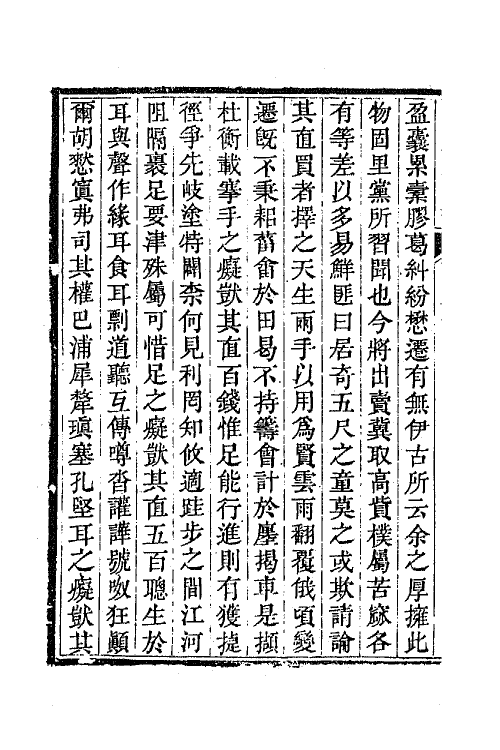 盈囊累橐膠葛糾紛懋遷有無伊古所云余之厚擁此
物固里黨所習聞也今將出賣冀取高貲樸屬苦窳各
有等差以多易鮮匪曰居奇五尺之童莫之或欺請論
其直買者擇之天生兩手以用爲賢雲雨翻覆俄頃變
遷旣不秉耜菑畬於田曷不持籌會計於廛揭車是擷
杜衡載搴手之癡獃其直百錢惟足能行進則有獲捷
徑爭先岐塗特闢柰何見利罔知攸適跬步之間江河
阻隔裹足要津殊屬可惜足之癡獃其直五百聰生於
耳與聲作緣耳食耳剽道聽互傳噂沓讙譁號呶狂顚
爾胡愁寘弗司其權巴浦犀犛瑱塞孔堅耳之癡獃其